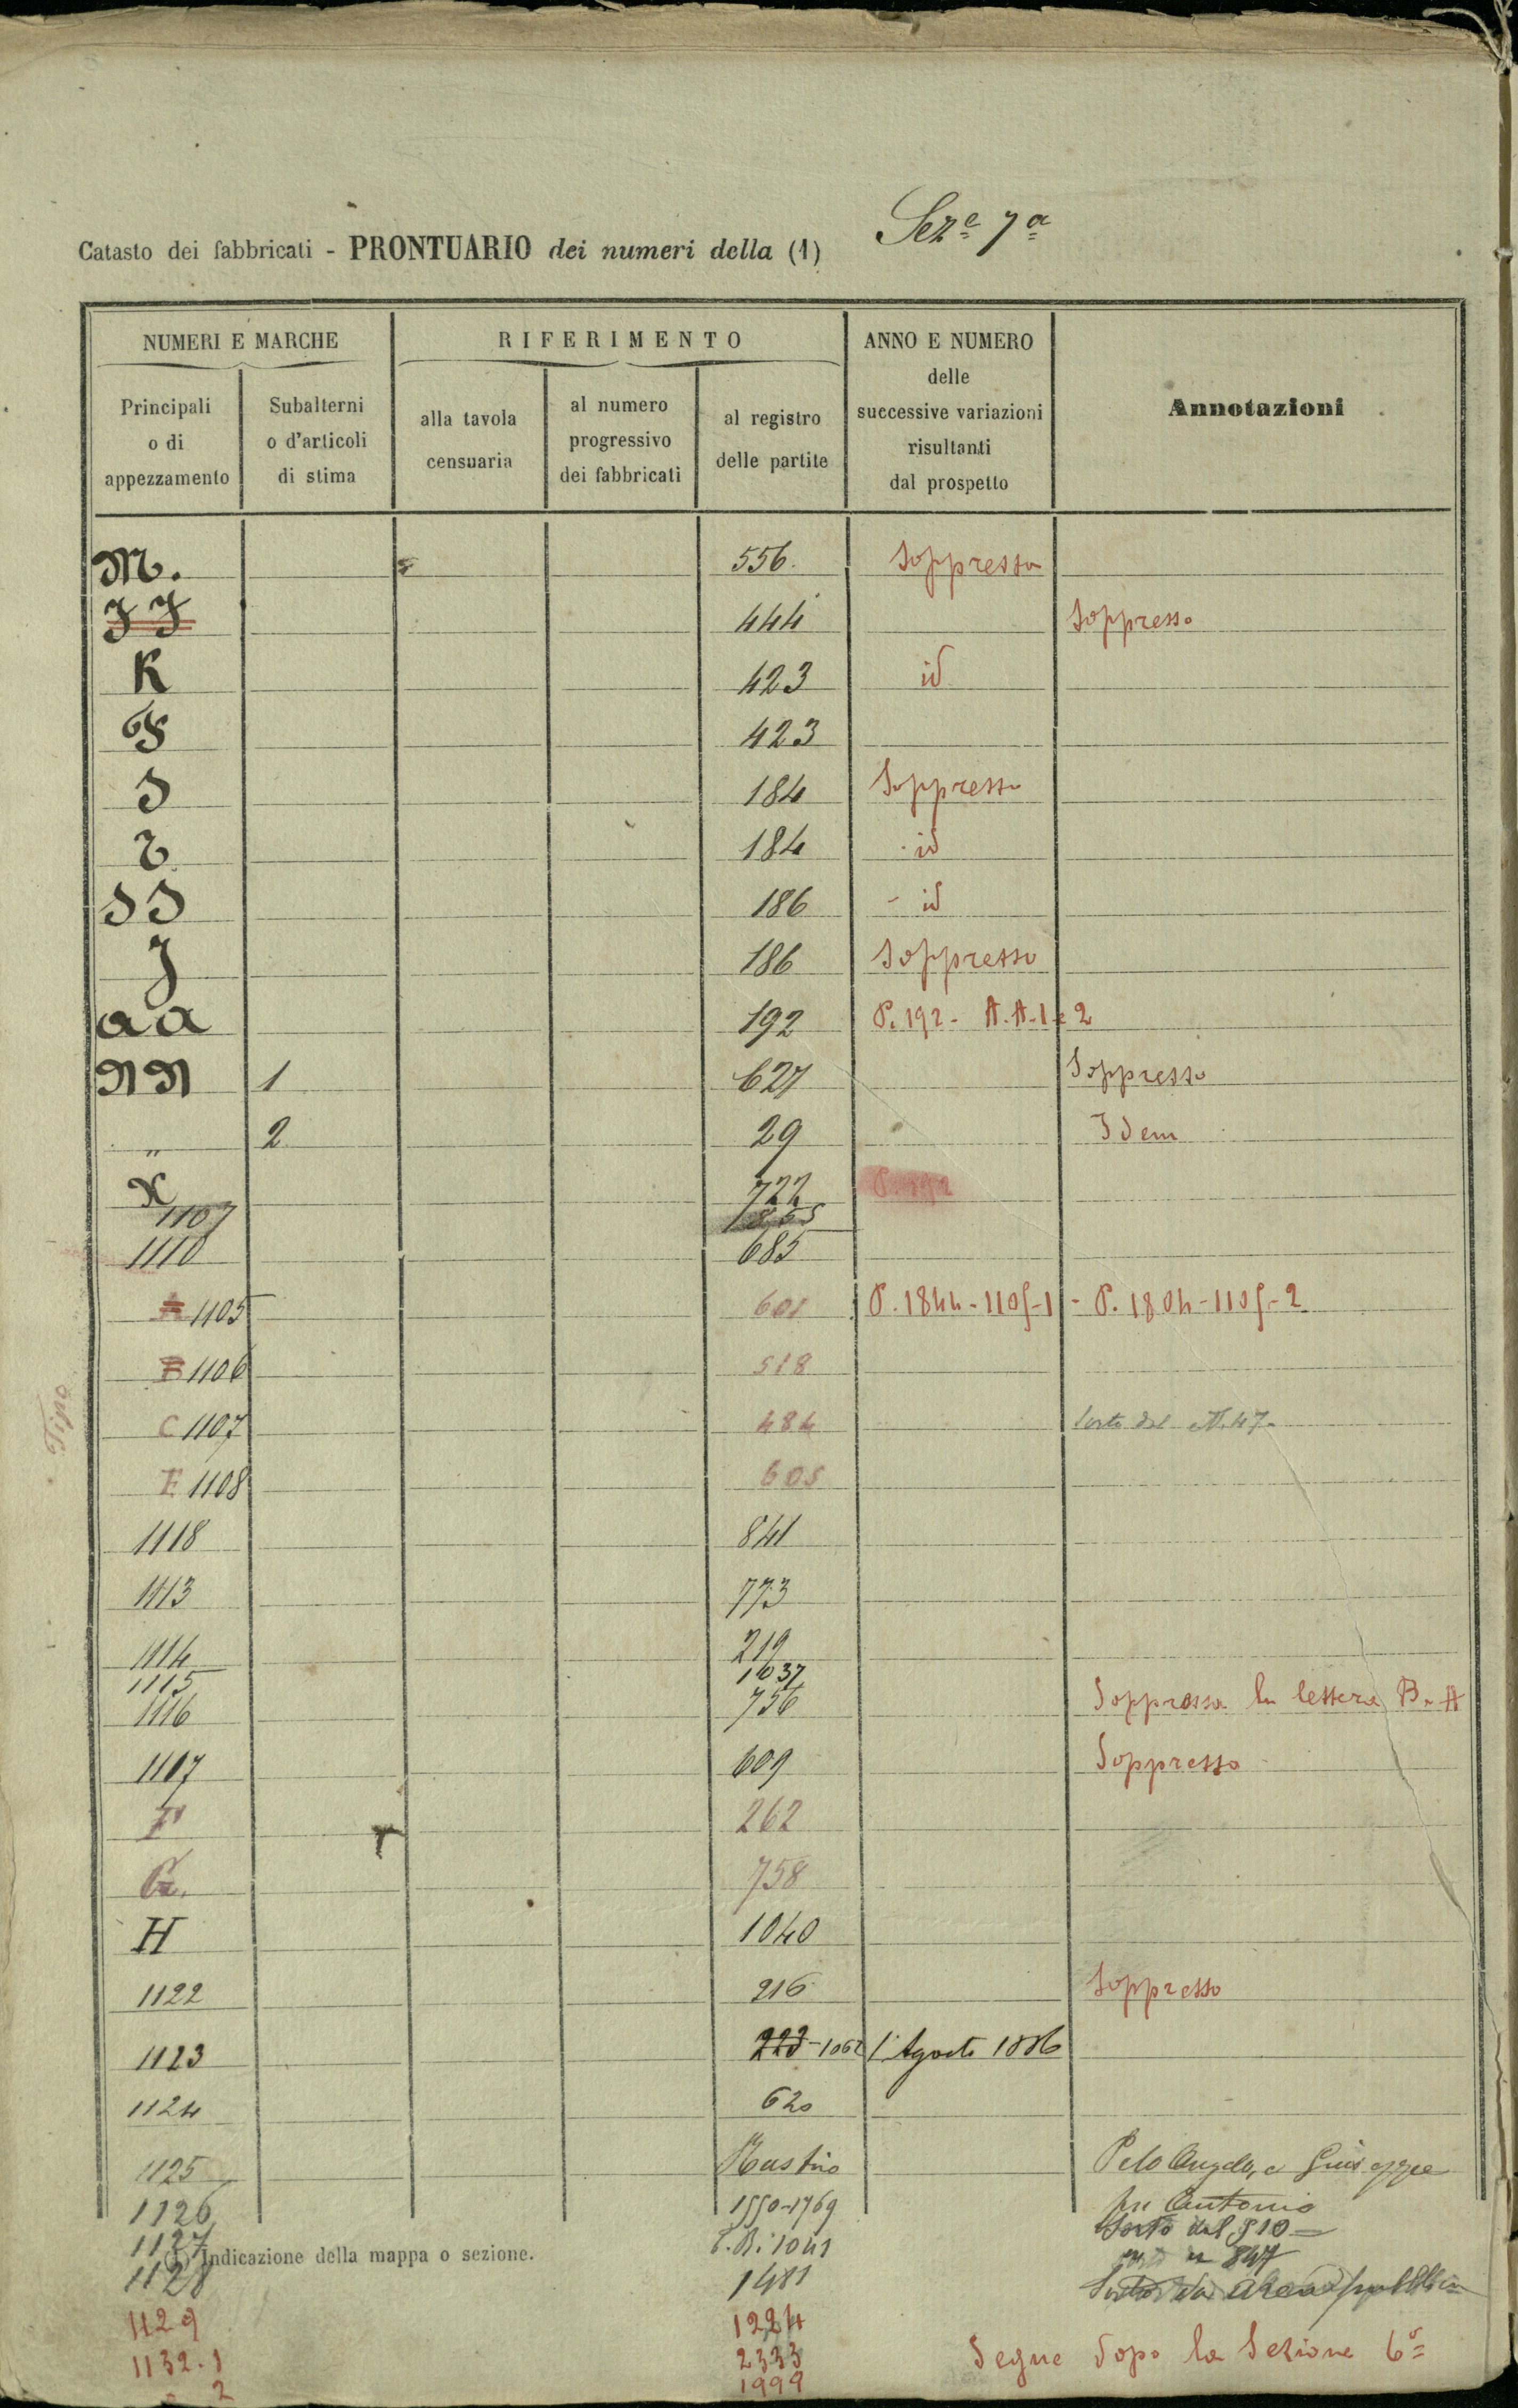 Catasto dei fabbricati - PRONTUARIO dei numeri della (1) Seze 7a
NUMERI E MARCHE
RIFERIMENTO
ANNO E NUMERO
delle
successive variazioni
risultanti
dal prospetto
Annotazioni
Principali
o di
appezzamento
Subalterni
o d'articoli
di stima
alla tavola
censuaria
al numero
progressivo
dei fabbricati
al registro
delle partite
M. 556. Soppresso
JJ 444 Soppresso
K 423 id
F 423
S 184 Soppresso
184 id
SS 186 - id
J 186 Soppresso
aa 192 P. 192 - A.A-1 e 2
NN 1 627 Soppresso
" 2 29 Idem
X 722
1107 1855
1110 685
1105 601 P. 1844-1105-1 - P. 1804-1105-2
B 1106 518
C 1107 484 Sorto dal N. 47
E 1108 605
Tipo
1118 841
1113 773
1114 219
1115 1637
1116 756 Soppressa la lettera B. A
1107 609 Soppresso
F 262
G. 758
H 1040
1122 216 Soppresso
1123 223-1062 1° Agosto 1886
1124 620
1125 Pelo Angelo, e Giuseppe
1126 1550-1769 fu Antonio
Sorto dal 510 =
1127 1041 847
(1) Indicazione della mappa o sezione.
1128 1481 Sorto da area pubblica
1129 1224
1132.1 2333 Segue dopo la Sezione 6a
2 1999